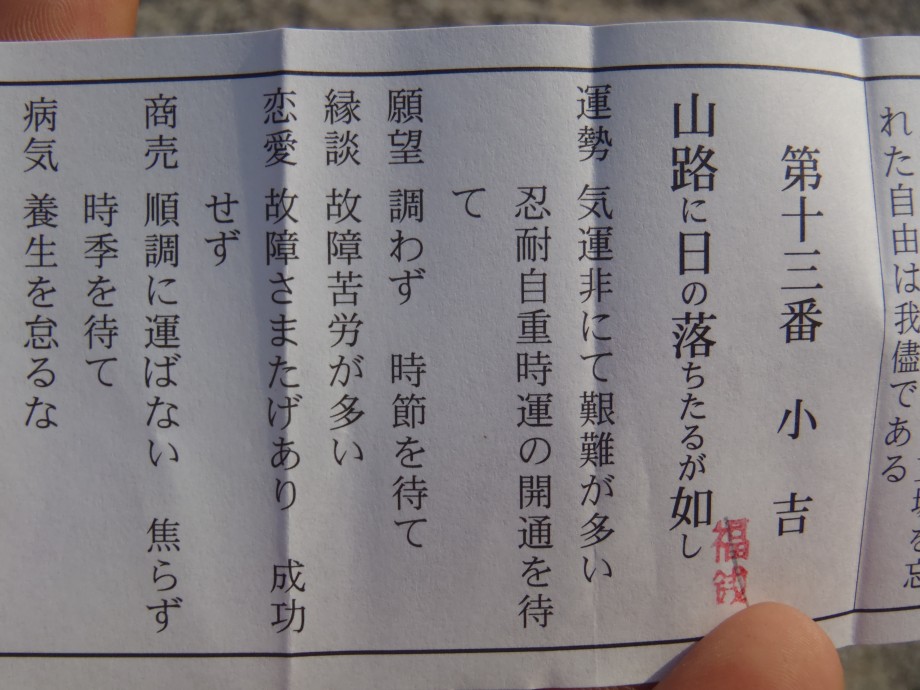 れた自由は我儘である
第十三番 小吉
山路に日の落ちたるが如し
運勢 気運非にて艱難が多い
忍耐自重時運の開通を待
て
願望 調わず 時節を待て
縁談 故障苦労が多い
恋愛 故障さまたげあり 成功
せず
商売 順調に運ばない 焦らず
時季を待て
病気 養生を怠るな